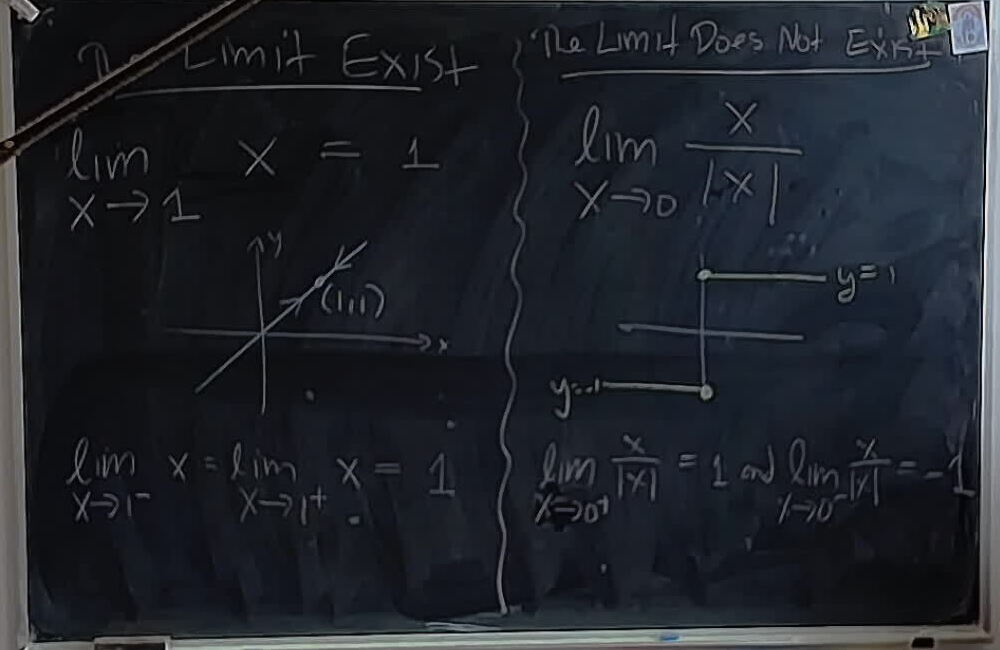 The Limit Exist
lim x = 1
x→1
y
(1,1)
x
lim x = lim x = 1
x→1⁻ x→1⁺
The Limit Does Not Exist
lim x/|x|
x→0
y=1
y=-1
lim x/|x| = 1 and lim x/|x| = -1
x→0⁺ x→0⁻